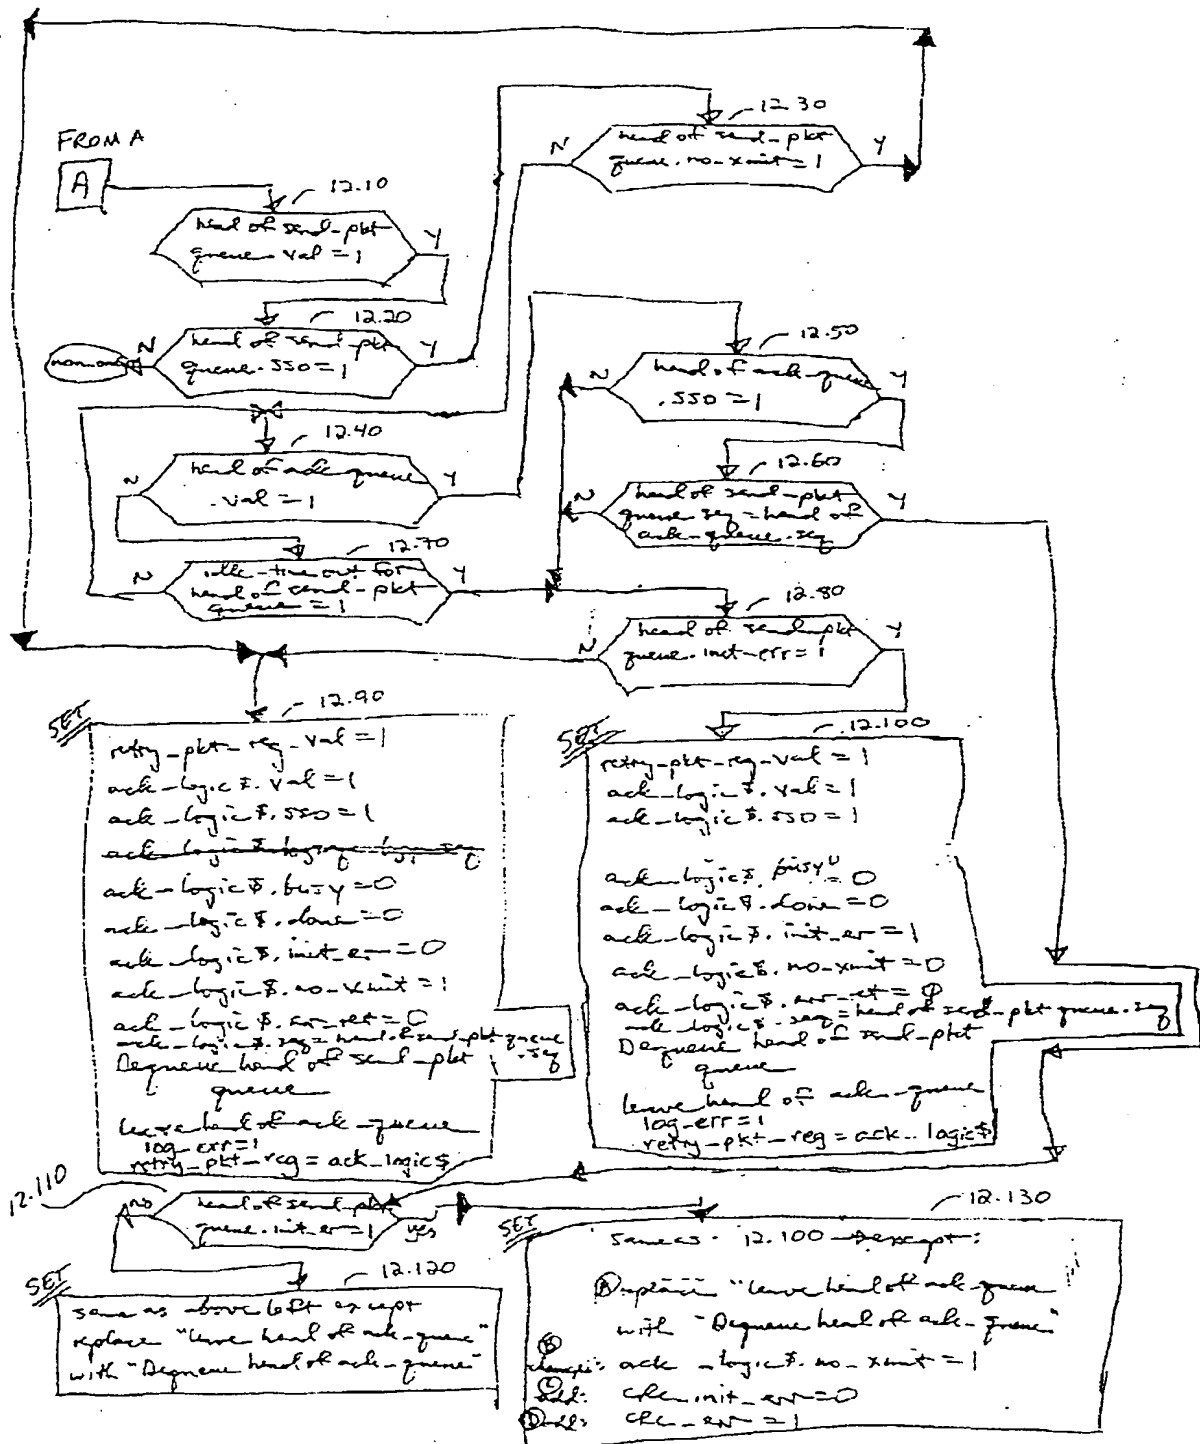 FROM A
A
12.10
head of send-pkt
queue.val = 1
Y
12.20
head of send-pkt
queue.sso = 1
N
Y
12.30
head of send-pkt
queue.no-xmit = 1
N
Y
12.40
head of ack-queue
.val = 1
N
Y
12.50
head of ack-queue
.sso = 1
N
Y
12.60
head of send-pkt
queue.seq = head of
ack-queue.seq
N
Y
12.70
idle-time out for
head of send-pkt
queue = 1
N
Y
12.80
head of send-pkt
queue.init-err = 1
N
Y
12.90
SET
retry_pkt_reg_val = 1
ack_logic$.val = 1
ack_logic$.sso = 1
ack_logic$.busy = 0
ack_logic$.done = 0
ack_logic$.init_err = 0
ack_logic$.no-xmit = 1
ack_logic$.err_ret = 0
ack_logic$.seq = head of send_pkt queue
.seq
Dequeue head of send_pkt
queue
leave head of ack_queue
log_err = 1
retry_pkt_reg = ack_logic$
12.100
SET
retry_pkt_reg_val = 1
ack_logic$.val = 1
ack_logic$.sso = 1
ack_logic$.busy = 0
ack_logic$.done = 0
ack_logic$.init_er = 1
ack_logic$.no-xmit = 0
ack_logic$.err_ret = 0
ack_logic$.seq = head of send_pkt queue.seq
Dequeue head of send_pkt
queue
leave head of ack_queue
log_err = 1
retry_pkt_reg = ack_logic$
12.110
head of send_pkt
queue.init_er = 1
no
yes
12.120
SET
same as above left except
replace "leave head of ack_queue"
with "Dequeue head of ack_queue"
12.130
SET
same as 12.100 except:
replace "leave head of ack_queue
with "Dequeue head of ack_queue"
B
change: ack_logic$.no_xmit = 1
C
add: init_err = 0
D add: = 1